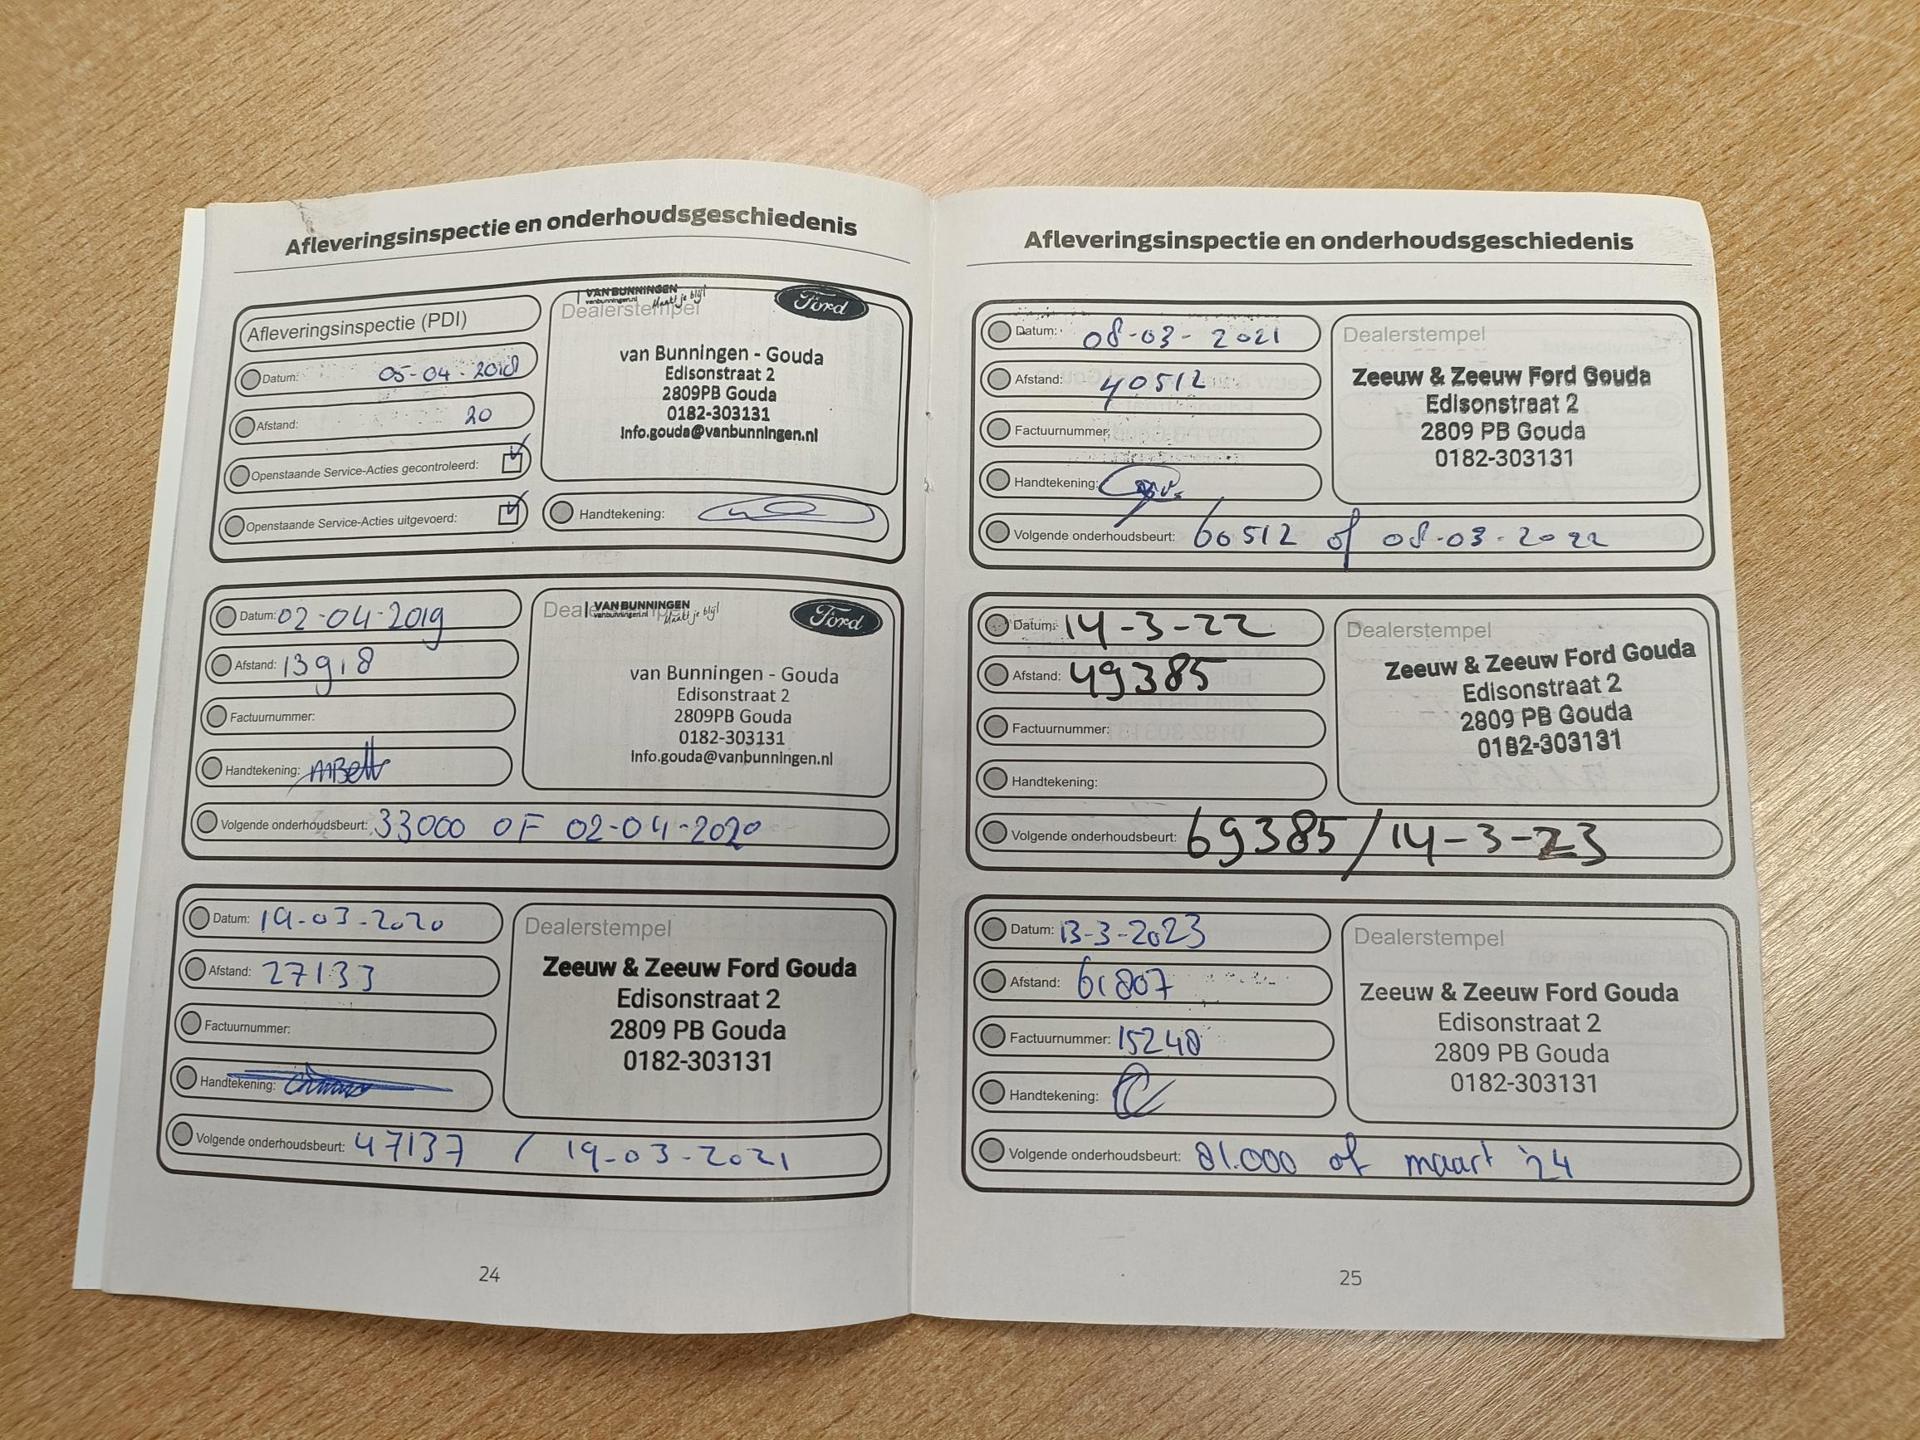 Afleveringsinspectie en onderhoudsgeschiedenis
Afleveringsinspectie (PDI)
Datum: 05-04-2018
Afstand: 20
Openstaande Service-Acties gecontroleerd:
Openstaande Service-Acties uitgevoerd:
VAN BUNNINGEN
vanbunningen.nl
Maakt je blij!
Ford
Dealerstempel
van Bunningen - Gouda
Edisonstraat 2
2809PB Gouda
0182-303131
Info.gouda@vanbunningen.nl
Handtekening:
Datum: 02-04-2019
Afstand: 13918
Factuurnummer:
Handtekening:
VAN BUNNINGEN
vanbunningen.nl
Maakt je blij!
Ford
van Bunningen - Gouda
Edisonstraat 2
2809PB Gouda
0182-303131
Info.gouda@vanbunningen.nl
Volgende onderhoudsbeurt: 33000 OF 02-04-2020
Datum: 19-03-2020
Afstand: 27133
Factuurnummer:
Handtekening:
Dealerstempel
Zeeuw & Zeeuw Ford Gouda
Edisonstraat 2
2809 PB Gouda
0182-303131
Volgende onderhoudsbeurt: 47137 / 19-03-2021
24
Afleveringsinspectie en onderhoudsgeschiedenis
Datum: 08-03-2021
Afstand: 40512
Factuurnummer:
Handtekening:
Dealerstempel
Zeeuw & Zeeuw Ford Gouda
Edisonstraat 2
2809 PB Gouda
0182-303131
Volgende onderhoudsbeurt: 60512 of 08-03-2022
Datum: 14-3-22
Afstand: 49385
Factuurnummer:
Handtekening:
Dealerstempel
Zeeuw & Zeeuw Ford Gouda
Edisonstraat 2
2809 PB Gouda
0182-303131
Volgende onderhoudsbeurt: 69385/14-3-23
Datum: 13-3-2023
Afstand: 61807
Factuurnummer: 15248
Handtekening:
Dealerstempel
Zeeuw & Zeeuw Ford Gouda
Edisonstraat 2
2809 PB Gouda
0182-303131
Volgende onderhoudsbeurt: 81.000 of maart '24
25